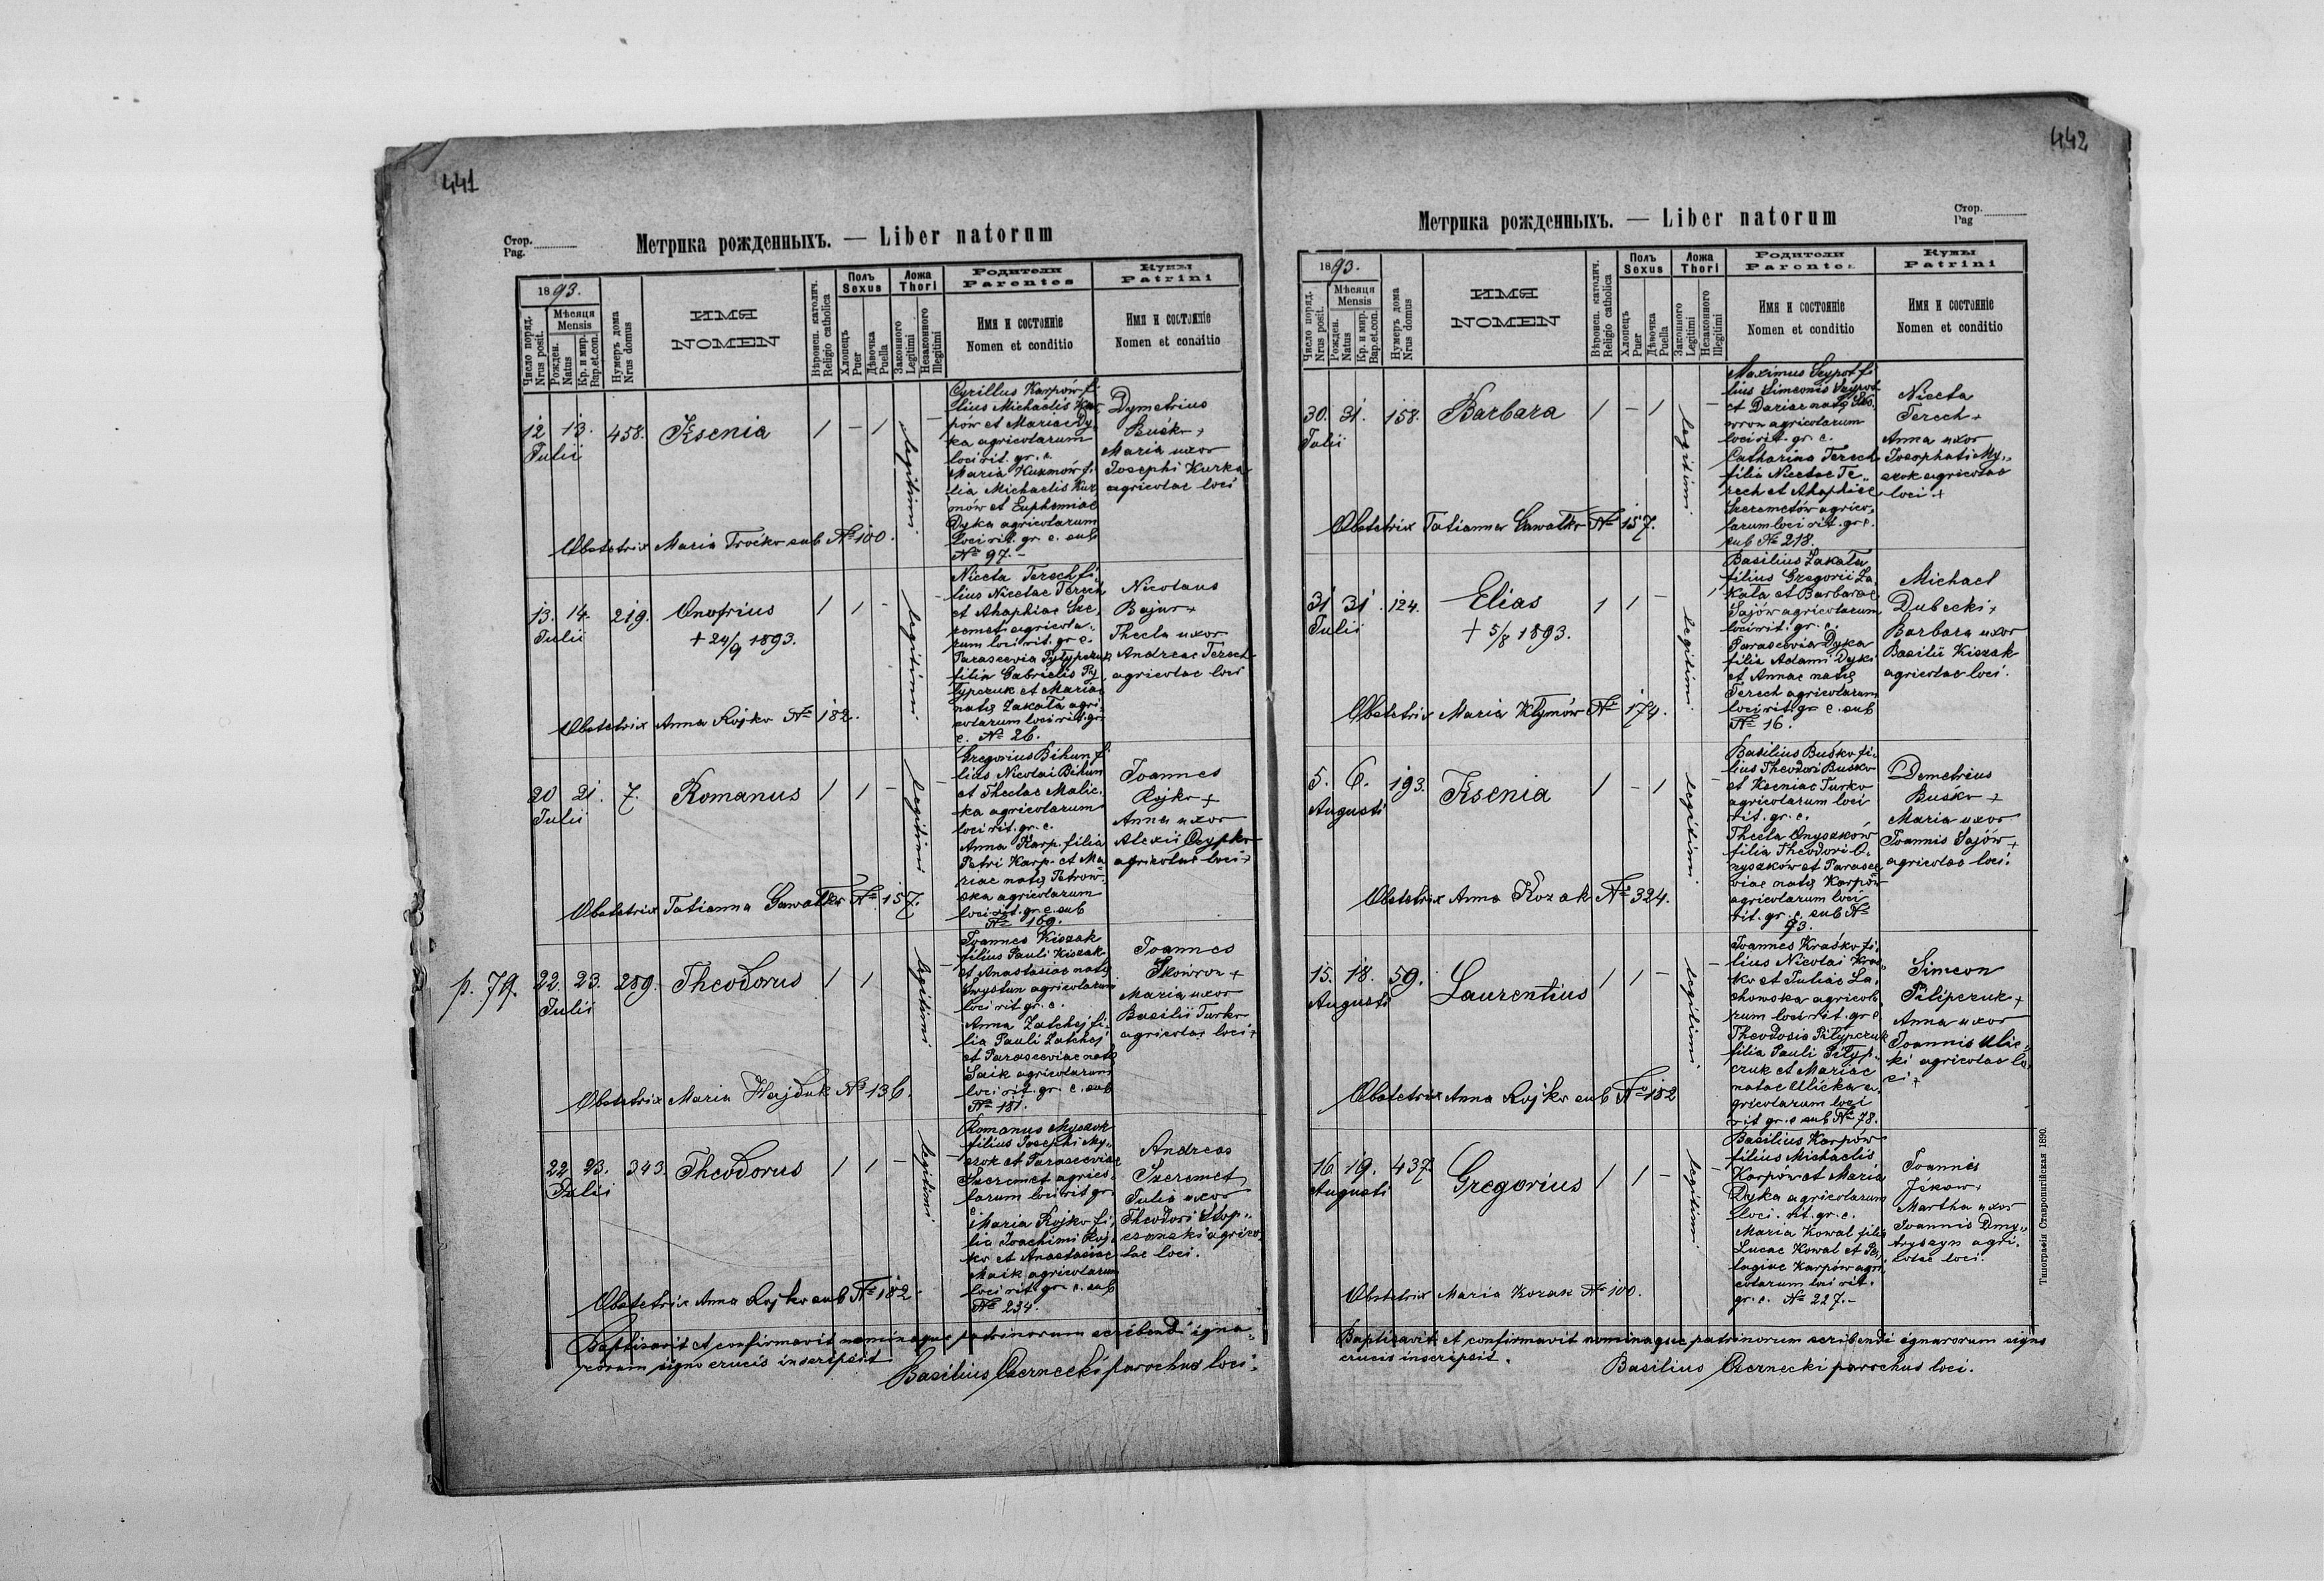 441
Стор.
Pag.
Метрика рожденныхъ. — Liber natorum
1893.
Число поряд.
Nrus posit.
Мѣсяця
Mensis
Рожден.
Natus
Кр. и мир.
Bap.et.con.
Нумеръ дома
Nrus domus
ИМЯ
NOMEN
Вѣроисп. католич.
Religio catholica
Полъ
Sexus
Хлопецъ
Puer
Дѣвочка
Puella
Ложа
Thori
Законного
Legitimi
Незаконного
Illegitimi
Родители
Parentes
Имя и состояніе
Nomen et conditio
Кумы
Patrini
Имя и состояніе
Nomen et conditio
12 13. 458. Ksenia 1 – 1 legitimi –
Julii
Cyrillus Karpów fi
lius Michaelis Kar
pów et Mariae Dy
ka agricolarum
loci rit. gr. c.
Maria Kuxmów fi
lia Michaelis Kux
mów et Euphemiae
Dyka agricolarum
loci rit. gr. c. sub
№ 97. –
Dymetrius
Buśko +
Maria uxor
Josephi Kurka
agricolae loci
Obstetrix Maria Troćko sub № 100.
13. 14. 219. Onofrius 1 1 – legitimi –
Julii
+ 24/9 1893.
Niceta Terech fi
lius Nicetae Terech
et Ahaphiae Sze,
remet agricola„
rum loci rit. gr c.
Parascevia Pylypczuk
filia Gabrielis Py
lypczuk et Mariae
natę Zakala agri
colarum loci rit. gr
c. № 26.
Nicolaus
Bajur +
Thecla uxor
Andreae Terech
agricolae loci
Obstetrix Anna Rojko № 182.
20 21. 7. Romanus 1 1 – legitimi –
Julii
Gregorius Bihun fi
lius Nicolai Bihun
et Theclae Malic,
ka agricolarum
loci rit. gr. c.
Anna Karp. filia
Petri Karp. et Ma
riae natę Petrow
ska agricolarum
loci rit. gr c. sub
№ 169.
Joannes
Rojko +
Anna uxor
Alexii Osypko
agricolae loci +
Obstetrix Tatianna Gawalko № 157.
p. 79.
22. 23. 289. Theodorus 1 1 legitimi –
Julii
Joannes Kiszak
filius Pauli Kiszak
et Anastasiae natę
Swystun agricolarum
loci rit gr. c.
Anna Zatchej fi„
lia Pauli Zatchej
et Parasceviae natę
Saik agricolarum
loci rit. gr. c. sub
№ 181.
Joannes
Skowron +
Maria uxor
Basilii Turko
agricolae loci +
Obstetrix Maria Hajduk № 136.
22 23. 343. Theodorus 1 1 – legitimi –
Julii
Romanus Myszok
filius Josephi My„
szok et Parasceviae
Szeremet agrico,
larum loci rit gr
c
Maria Rojko fi,
lia Joachimi Roj,
ko et Anastasiae
Maik agricolarum
loci rit. gr c. sub
№ 234.
Andreas
Szeremet
Julia uxor
Theodori Slop„
czanski agrico
lae loci.
Obstetrix Anna Rojko sub № 182.
Baptisavit et confirmavit nominaque patrinorum scribendi igna„
rorum signo crucis inscripsit
Basilius Czernecki parochus loci.
442
Стор.
Pag
Метрика рожденныхъ. — Liber natorum
1893.
Число поряд.
Nrus posit.
Мѣсяця
Mensis
Рожден.
Natus
Кр. и мир.
Bap.et.con.
Нумеръ дома
Nrus domus
ИМЯ
NOMEN
Вѣроисп. католич.
Religio catholica
Полъ
Sexus
Хлопецъ
Puer
Дѣвочка
Puella
Ложа
Thori
Законного
Legitimi
Незаконного
Illegitimi
Родители
Parentes
Имя и состояніе
Nomen et conditio
Кумы
Patrini
Имя и состояніе
Nomen et conditio
30. 31. 158. Barbara 1 – 1 legitimi –
Julii
Maximus Szypot fi
lius Simeonis Szypot
et Dariae natę
wron agricolarum
loci rit. gr. c.
Catharina Terech
filia Nicetae Te„
rech et Ahaphiae
Szeremetów agrico,
larum loci rit. gr c.
sub № 218.
Niceta
Terech +
Anna uxor
Josephati My„
szok agricolae
loci +
Obstetrix Tatianna Gawalko № 157.
31 31. 124. Elias 1 1 – legitimi
Julii
+ 5/8 1893.
Basilius Zakala
filius Gregorii Za,
kala et Barbarae
Sajów agricolarum
loci rit. gr. c.
Parascevia Dyka
filia Adami Dyki
et Annae natę
Terech agricolarum
loci rit. gr c. sub
№ 16.
Michael
Dubecki +
Barbara uxor
Basilii Kiszak
agricolae loci.
Obstetrix Maria Klymów № 174.
5. 6. 193. Ksenia 1 – 1 legitimi –
Augusti
Basilius Buśko fi„
lius Theodori Busko
et Kseniae Turko
agricolarum loci
rit. gr. c.
Thecla Onyszków
filia Theodori O„
nyszków et Parasce
viae natę Karpów
agricolarum loci
rit. gr. c. sub №
93.
Demetrius
Buśko +
Maria uxor
Joannis Sajów +
agricolae loci.
Obstetrix Anna Kozak № 324.
15. 18. 59. Laurentius 1 1 – legitimi –
Augusti
Joannes Kraśko fi„
lius Nicolai Kraś„
ko et Juliae La„
chowska agricola
rum loci rit. gr c.
Theodosia Pilypczuk
filia Pauli Pilyp„
czuk et Mariae
natae Ulicka a„
gricolarum loci
rit gr. c sub № 78.
Simeon
Pilipczuk +
Anna uxor
Joannis Ulic„
ki agricolae lo
ci +
Obstetrix Anna Rojko sub № 182
16 19. 437 Gregorius 1 1 – legitimi –
Augusti
Basilius Karpów
filius Michaelis
Karpów et Maria
Dyka agricolarum
loci. rit. gr. c.
Maria Kowal filia
Lucae Kowal et Pe„
lagiae Karpów agri,
colarum loci rit.
gr. c. № 227. –
Joannes
Jékow +
Martha uxor
Joannis Dmy„
tryszyn agri„
colae loci.
Obstetrix Maria Kozak № 100.
Baptisavit et confirmavit nominaque patrinorum scribendi ignarorum signo
crucis inscripsit.
Basilius Czernecki parochus loci.
Типографія Ставропигійская 1890.